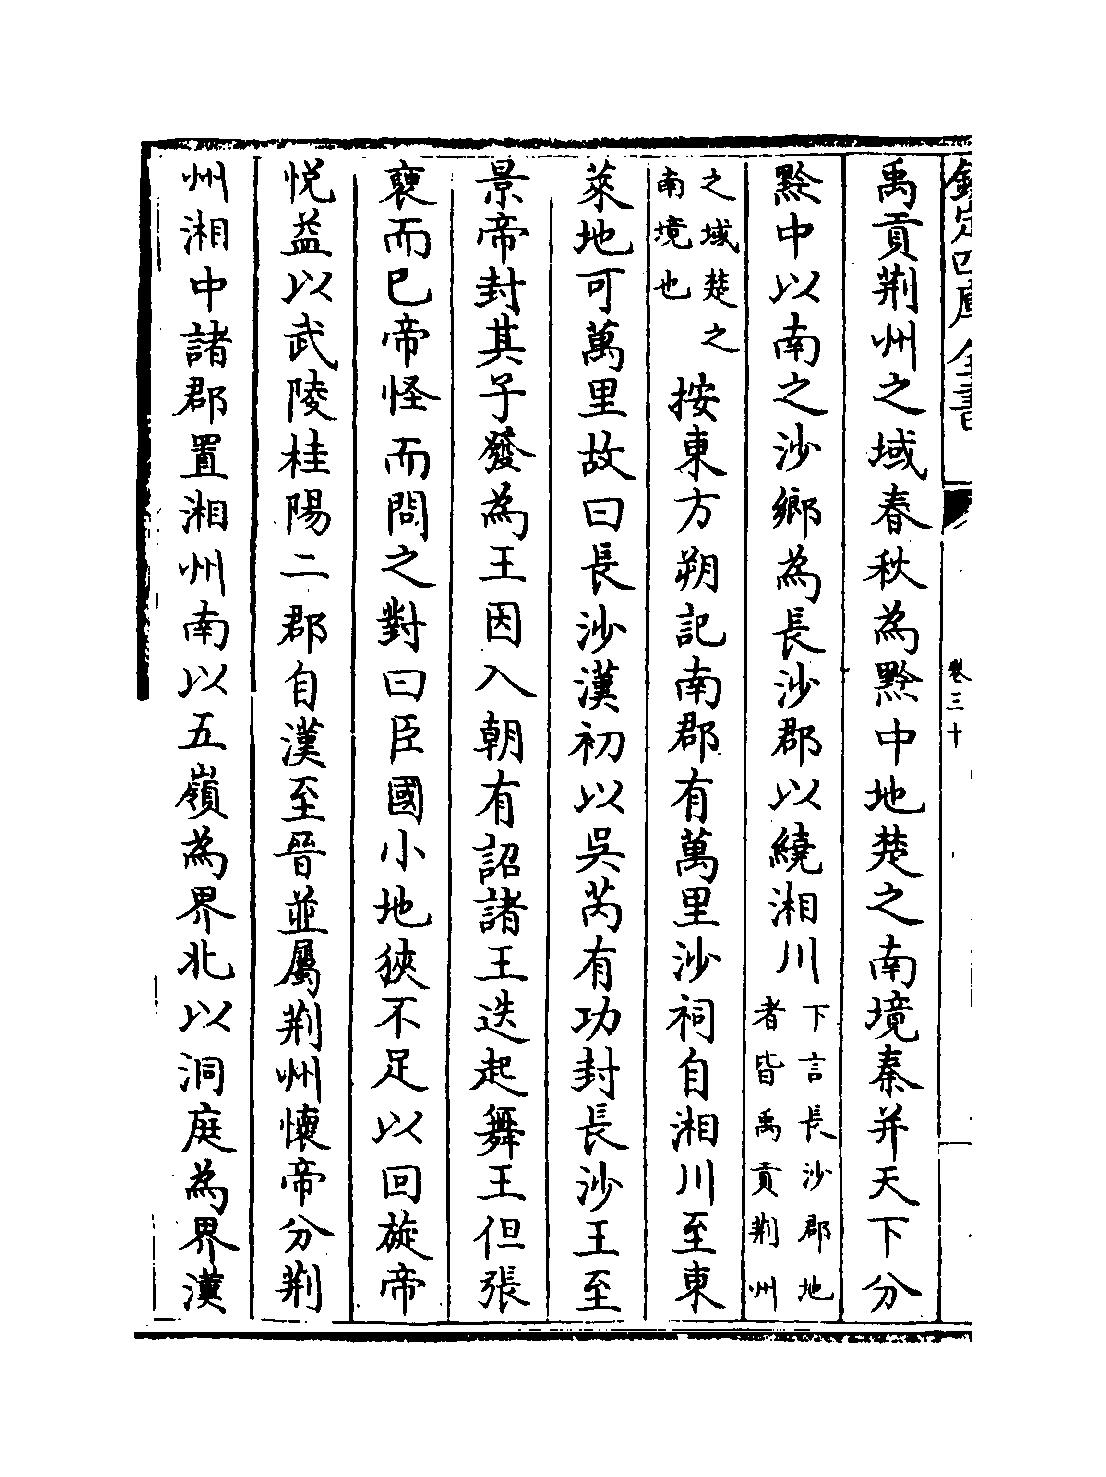 欽定四庫全書
卷三十
禹貢荆州之域春秋為黔中地楚之南境秦并天下分
黔中以南之沙鄉為長沙郡以繞湘川下言長沙郡地
者皆禹貢荆州
之域楚之
南境也
按東方朔記南郡有萬里沙祠自湘川至東
萊地可萬里故曰長沙漢初以吳芮有功封長沙王至
景帝封其子發為王因入朝有詔諸王迭起舞王但張
褏而已帝怪而問之對曰臣國小地狹不足以回旋帝
悦益以武陵桂陽二郡自漢至晉並屬荆州懷帝分荆
州湘中諸郡置湘州南以五嶺為界北以洞庭為界漢